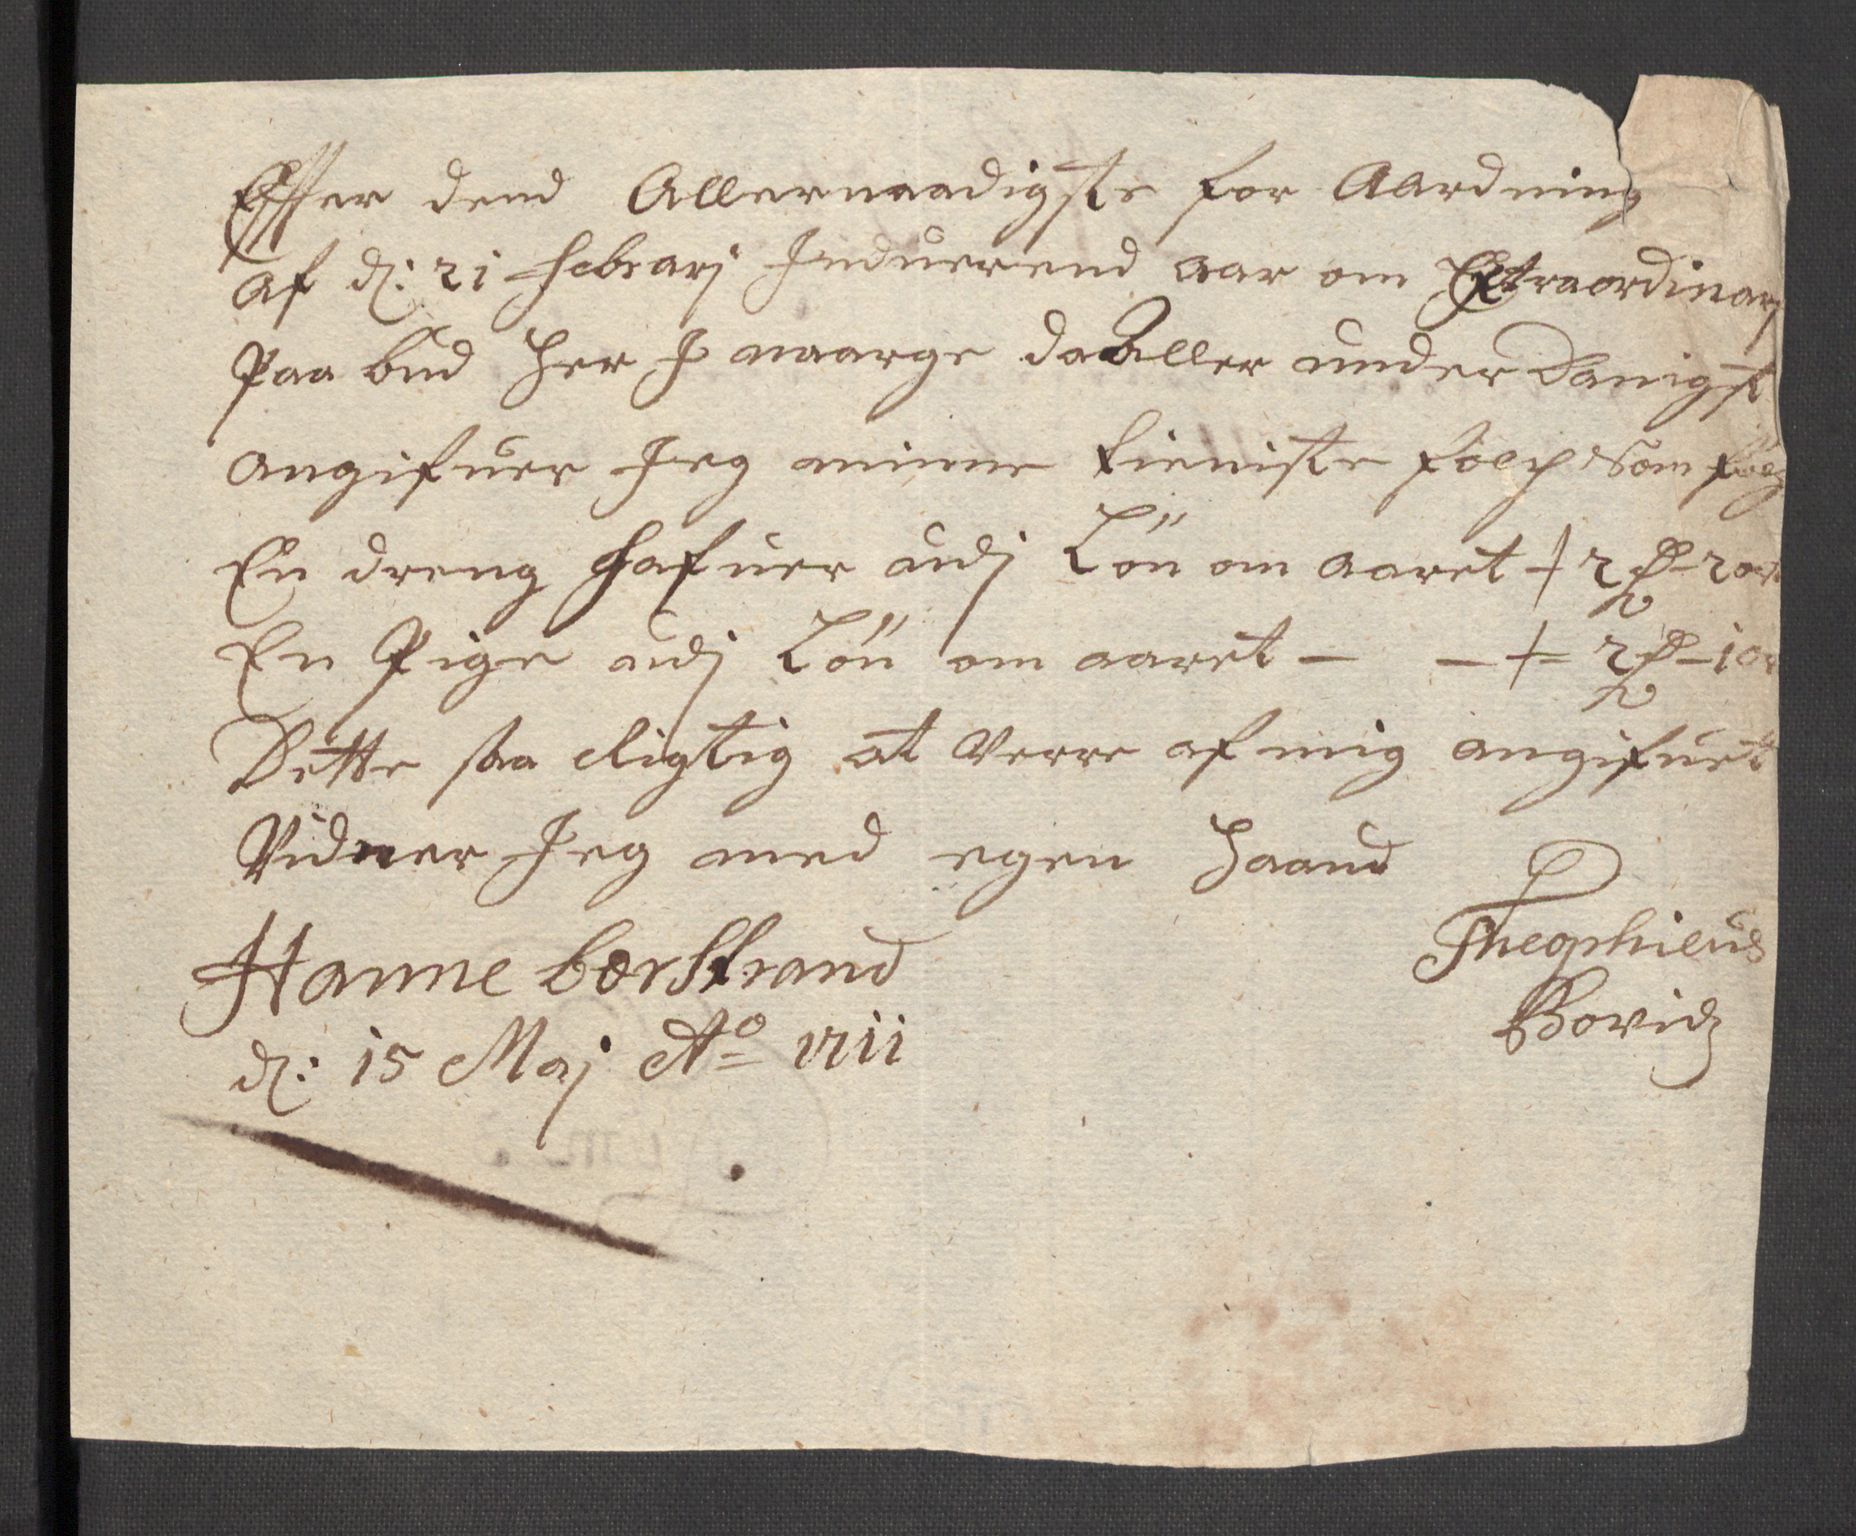 Effter dend Allernaadigste for Aardning
af d: 21 Febrarj Induerend aar om Extraordinarj
Paa bud her I naarge da Aller under Danigst
angifuer Jeg minne tieniste folch som følg
En dreng hafuer udj Lön om aaret 2 rd - 2 ort
En Pige udj Lön om aaret - - 2 rd - 1 ort
Dette saa Rigtig at Verre af mig angifuet
Vidner Jeg med egen Haand
Hanne borstrand
d: 15 Maj Ao 1711
Theophilus
Bovidz